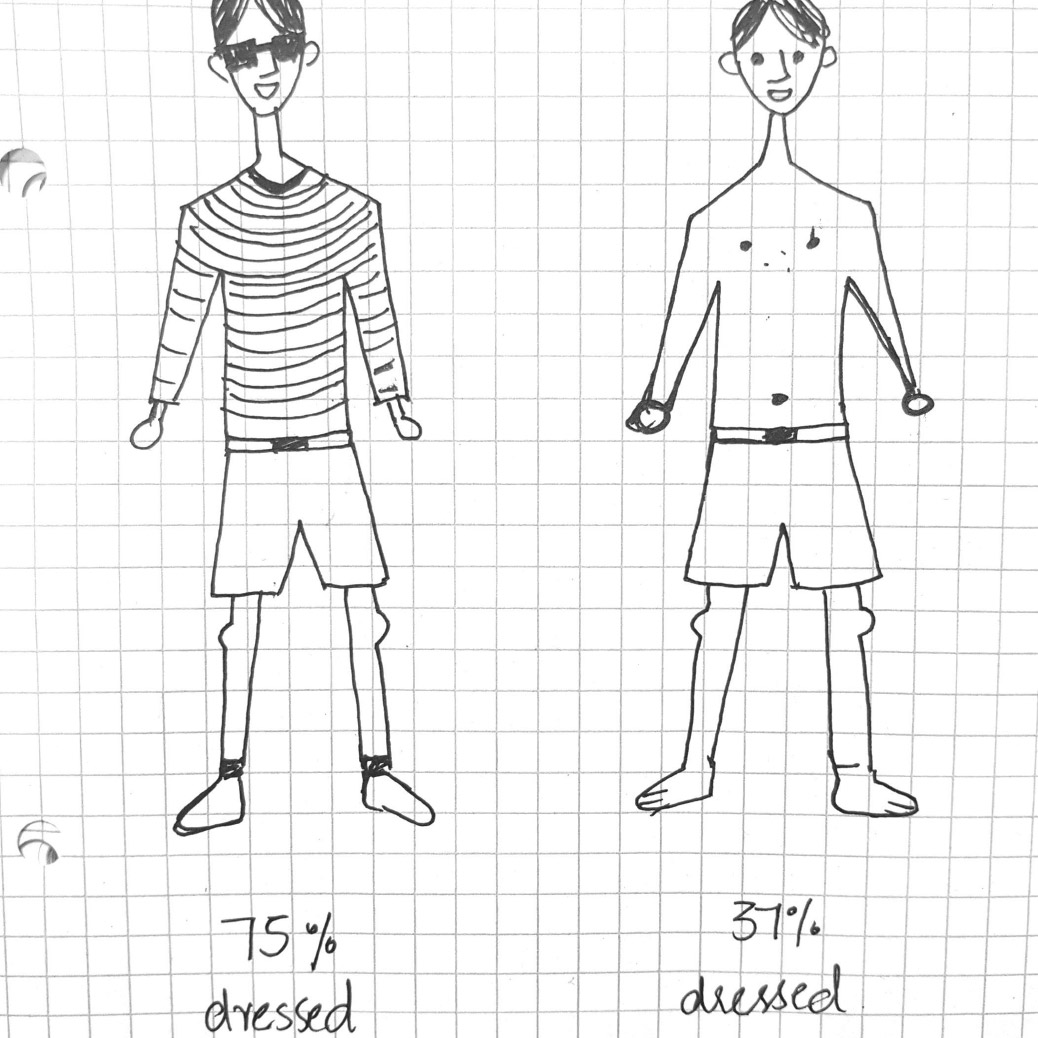 75%
dressed
37%
dressed